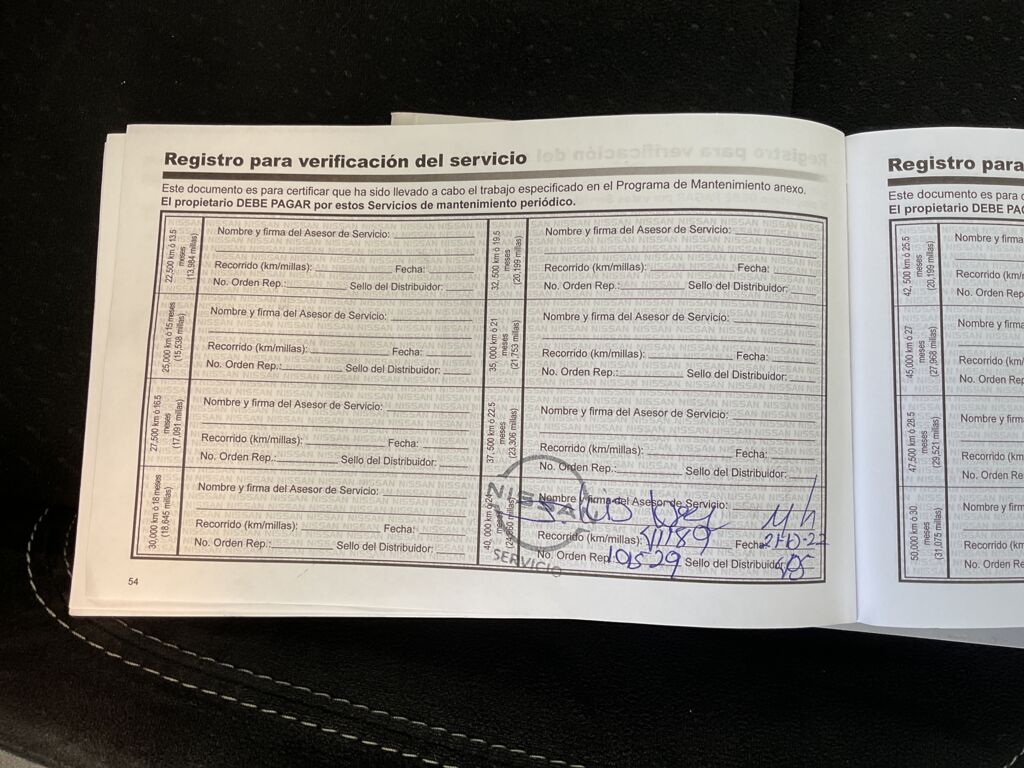 Registro para verificación del servicio
Este documento es para certificar que ha sido llevado a cabo el trabajo especificado en el Programa de Mantenimiento anexo.
El propietario DEBE PAGAR por estos Servicios de mantenimiento periódico.
22,500 km ó 13.5
meses
(13,984 millas)
Nombre y firma del Asesor de Servicio:
Recorrido (km/millas): Fecha:
No. Orden Rep.: Sello del Distribuidor:
25,000 km ó 15 meses
(15,538 millas)
Nombre y firma del Asesor de Servicio:
Recorrido (km/millas): Fecha:
No. Orden Rep.: Sello del Distribuidor:
27,500 km ó 16.5
meses
(17,091 millas)
Nombre y firma del Asesor de Servicio:
Recorrido (km/millas): Fecha:
No. Orden Rep.: Sello del Distribuidor:
30,000 km ó 18 meses
(18,645 millas)
Nombre y firma del Asesor de Servicio:
Recorrido (km/millas): Fecha:
No. Orden Rep.: Sello del Distribuidor:
32,500 km ó 19.5
meses
(20,199 millas)
Nombre y firma del Asesor de Servicio:
Recorrido (km/millas): Fecha:
No. Orden Rep.: Sello del Distribuidor:
35,000 km ó 21
meses
(21,753 millas)
Nombre y firma del Asesor de Servicio:
Recorrido (km/millas): Fecha:
No. Orden Rep.: Sello del Distribuidor:
37,500 km ó 22.5
meses
(23,306 millas)
Nombre y firma del Asesor de Servicio:
Recorrido (km/millas): Fecha:
No. Orden Rep.: Sello del Distribuidor:
40,000 km ó
meses
millas)
Nombre y firma del Asesor de Servicio:
Recorrido (km/millas): Fecha
No. Orden Rep. 101529 Sello del Distribuidor
NISSAN
SERVICIO
54
Registro para
Este documento es para c
El propietario DEBE PAG
42,500 km ó 25.5
meses
(20,199 millas)
Nombre y firma
Recorrido (km
No. Orden Rep
45,000 km ó 27
meses
(27,968 millas)
Nombre y firma
Recorrido (km
No. Orden Rep
47,500 km ó 28.5
meses
(29,521 millas)
Nombre y firma
Recorrido (km
No. Orden Re
50,000 km ó 30
meses
(31,075 millas)
Nombre y firm
Recorrido (km
No. Orden Re